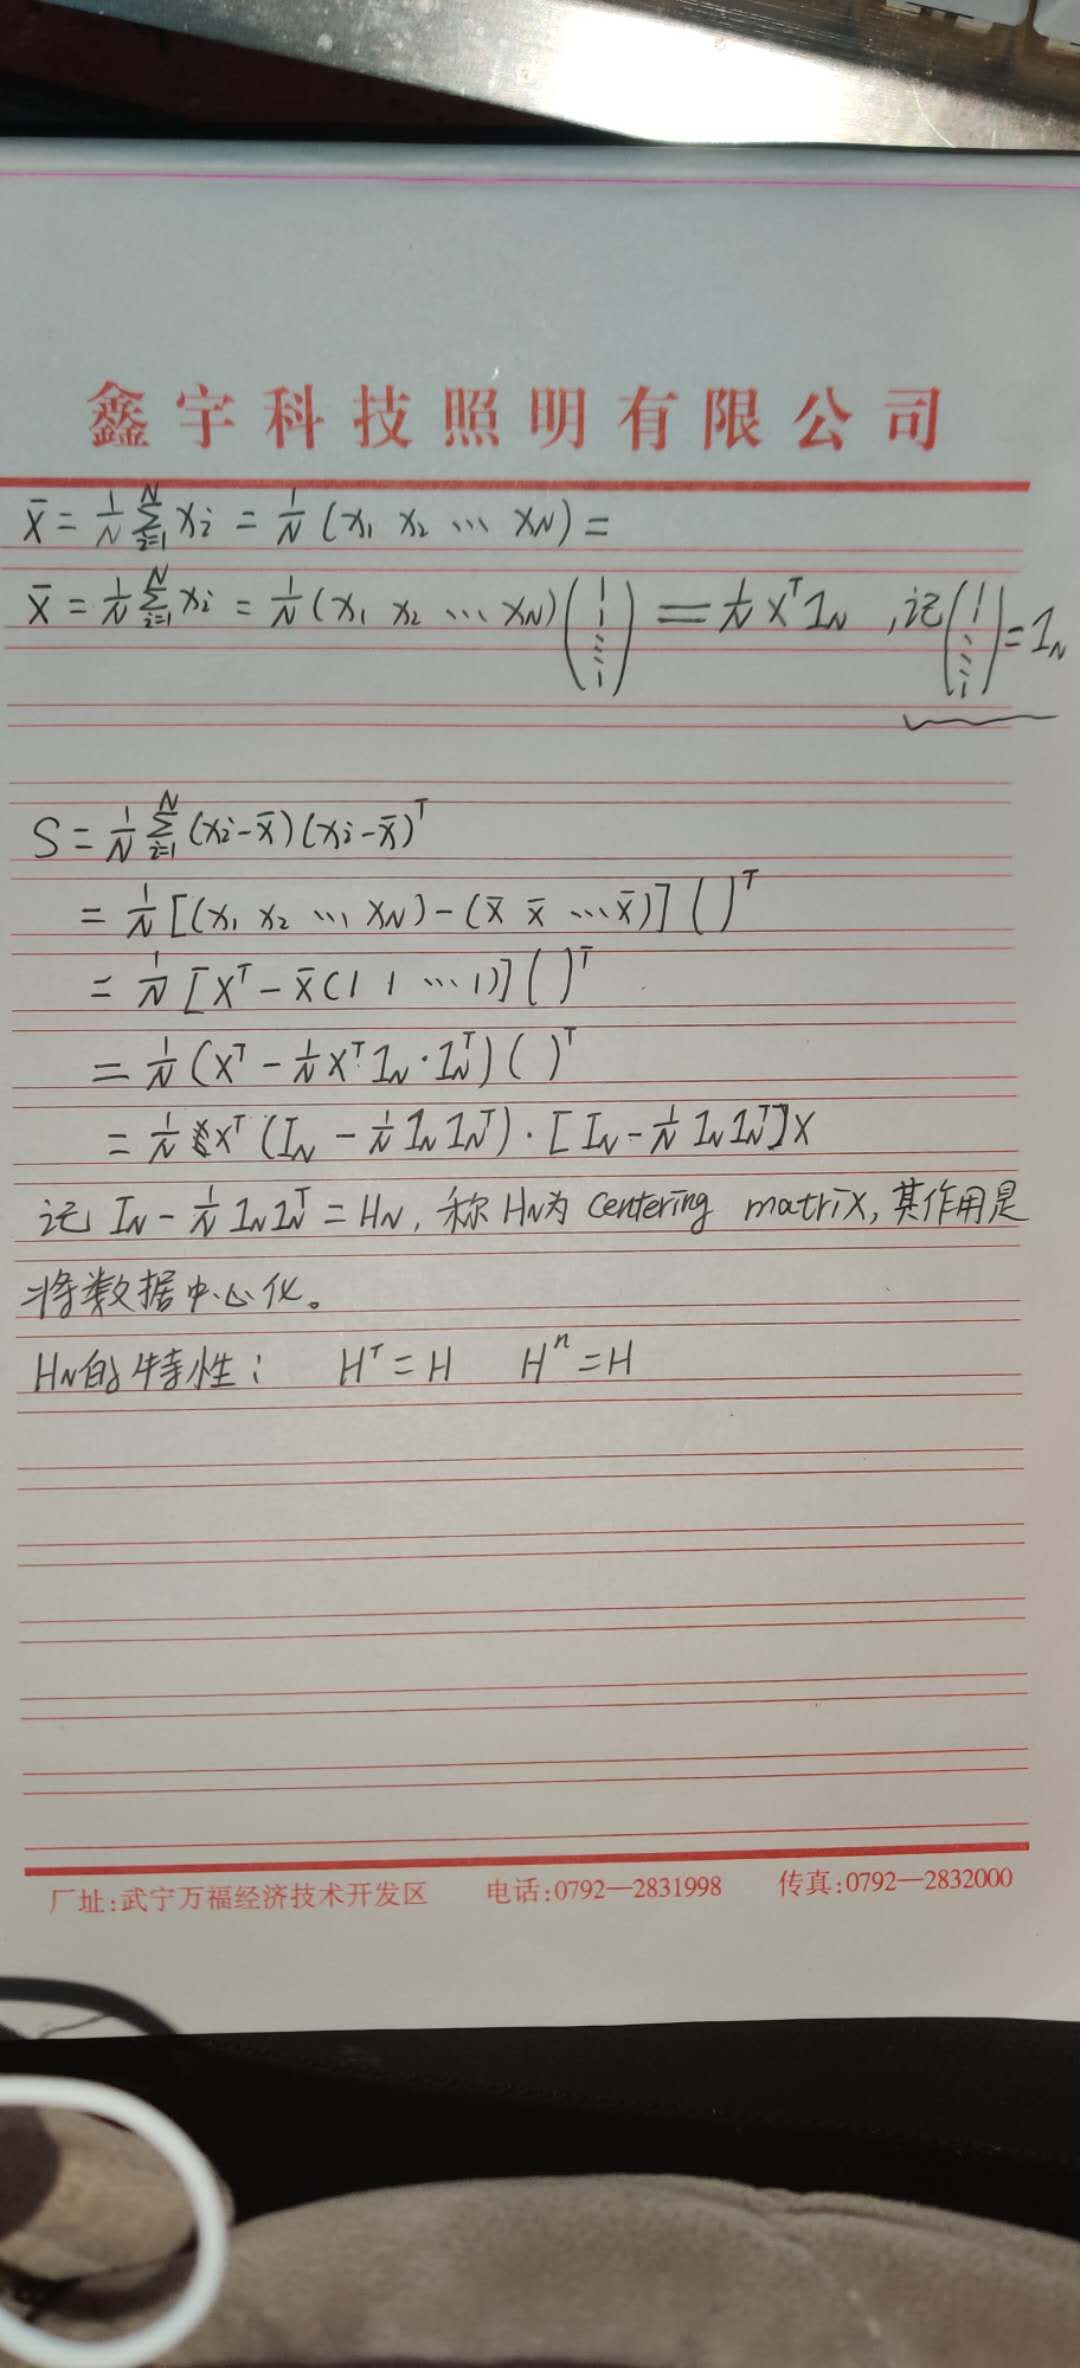 鑫宇科技照明有限公司
x̄ = 1/N ∑_{i=1}^{N} x_i = 1/N (x_1 x_2 ⋯ x_N) =
x̄ = 1/N ∑_{i=1}^{N} x_i = 1/N (x_1 x_2 ⋯ x_N) (1 1 ⋮ 1) = 1/N X^T 1_N , 记 (1 1 ⋮ 1) = 1_N
S = 1/N ∑_{i=1}^{N} (x_i - x̄)(x_i - x̄)^T
= 1/N [(x_1 x_2 ⋯ x_N) - (x̄ x̄ ⋯ x̄)] ( )^T
= 1/N [X^T - x̄ (1 1 ⋯ 1)] ( )^T
= 1/N (X^T - 1/N X^T 1_N · 1_N^T) ( )^T
= 1/N X^T (I_N - 1/N 1_N 1_N^T) · [I_N - 1/N 1_N 1_N^T] X
记 I_N - 1/N 1_N 1_N^T = H_N, 称 H_N为 centering matrix, 其作用是
将数据中心化。
H_N的特性: H^T = H H^n = H
厂址:武宁万福经济技术开发区 电话:0792—2831998 传真:0792—2832000